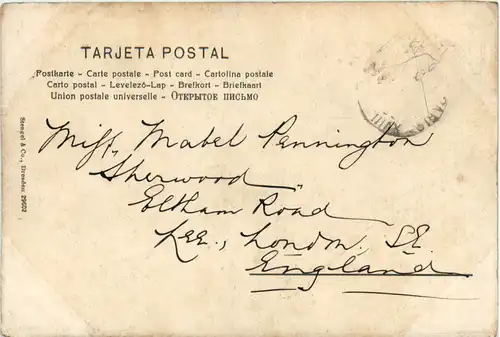 TARJETA POSTAL
Postkarte – Carte postale – Post card – Cartolina postale
Carto postal – Levelezö-Lap – Brefkort – Briefkaart
Union postale universelle – ОТКРЫТОЕ ПИСЬМО
Stengel & Co., Dresden 29602
Miss Mabel Pennington
"Sherwood"
Eltham Road
Lee., London, S.E.
England